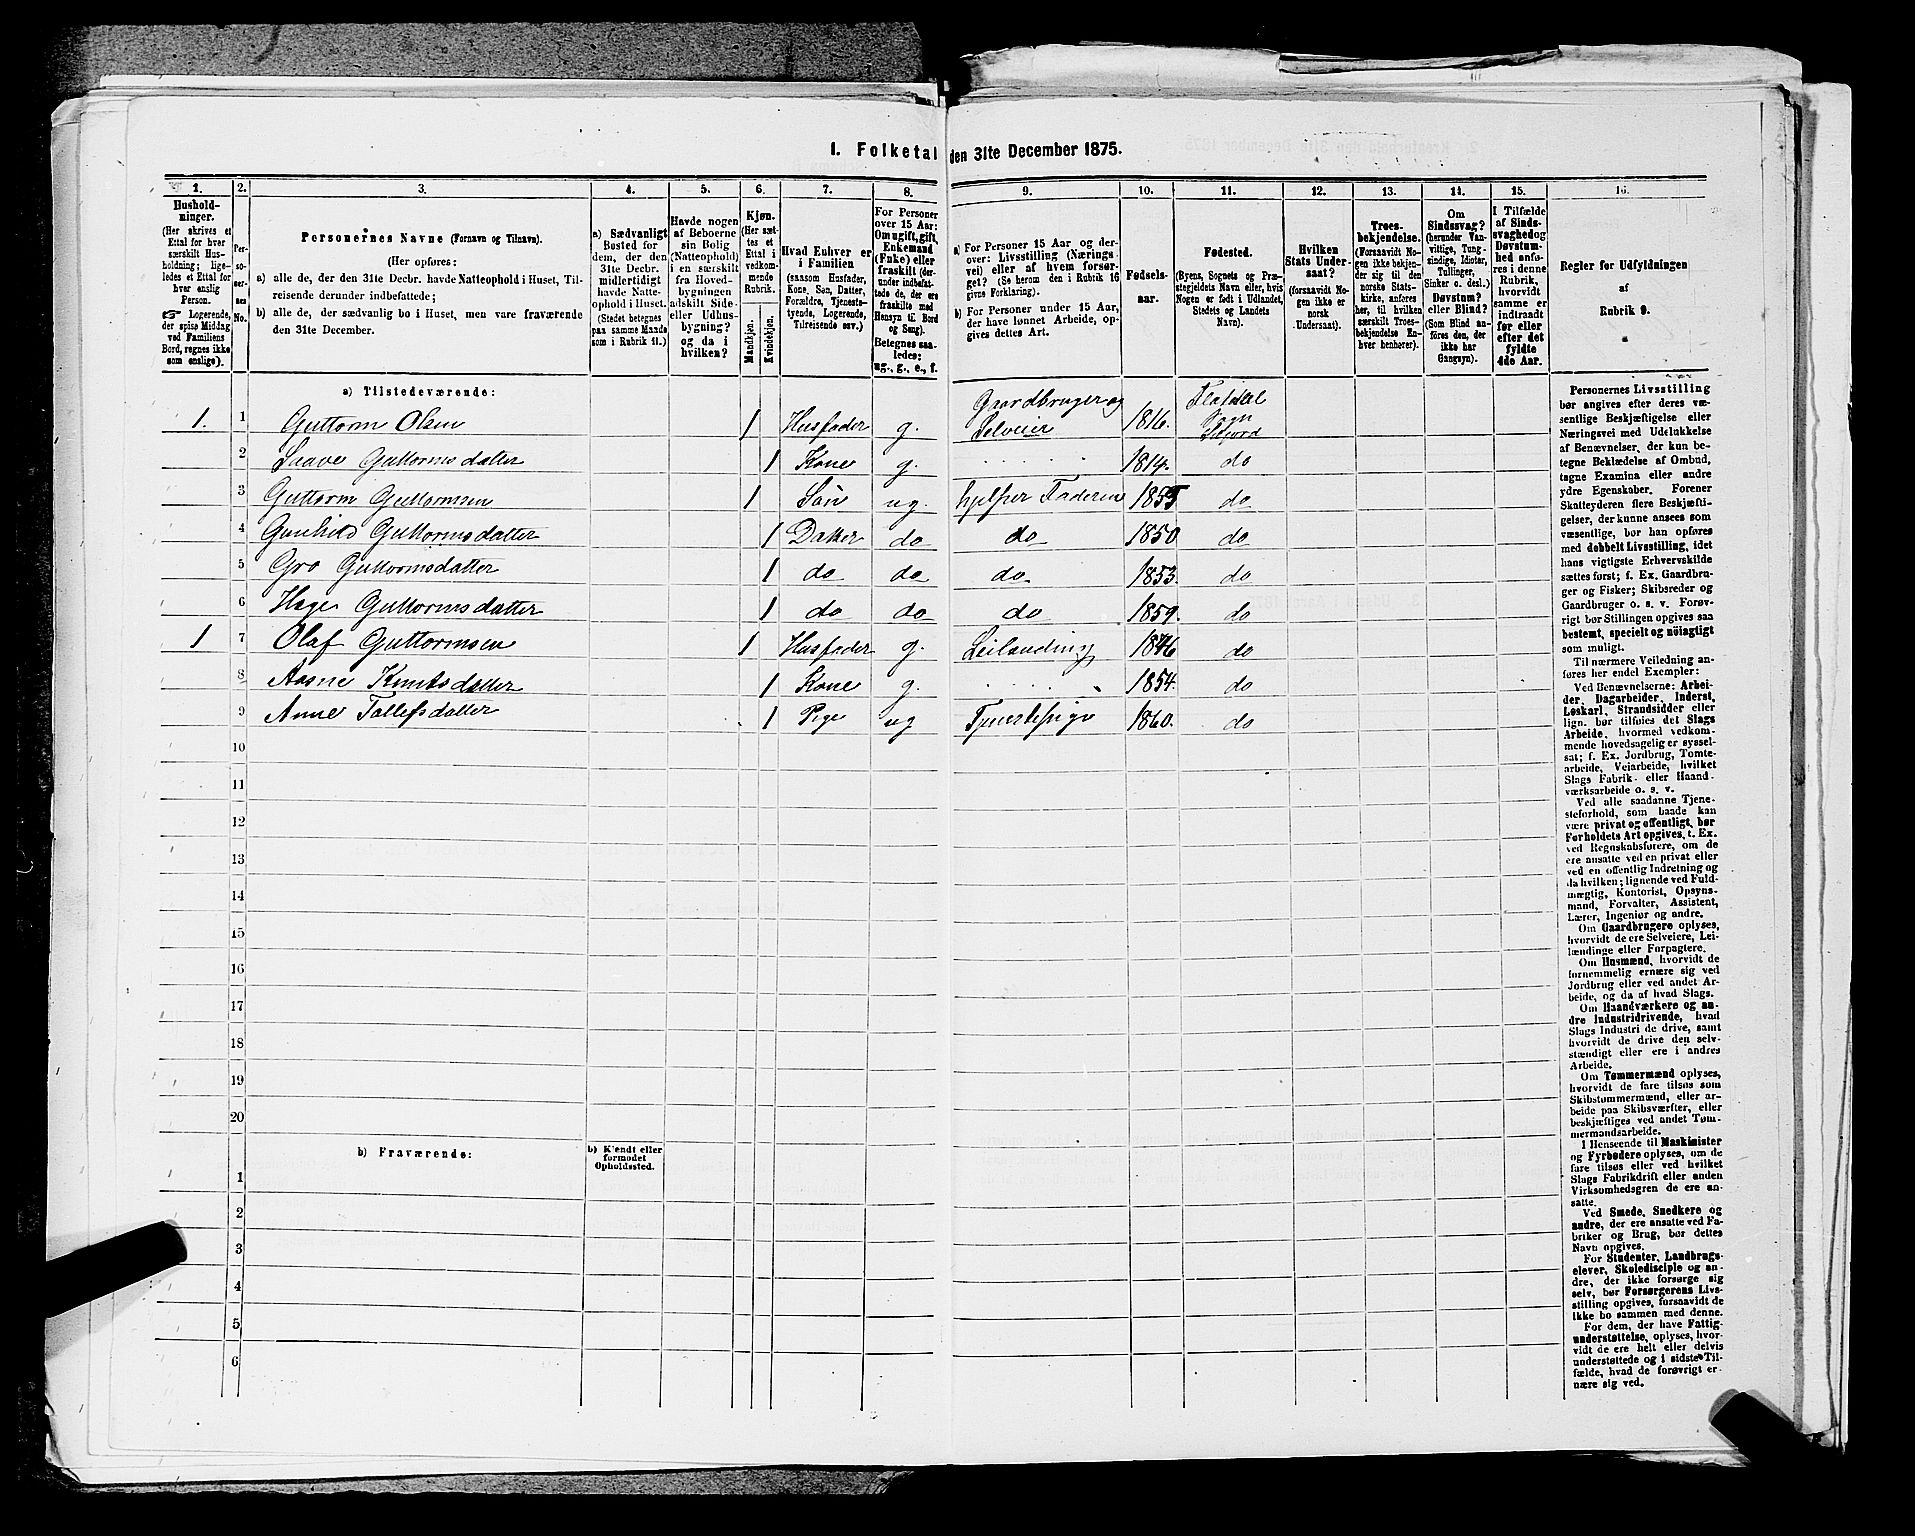 1. Folketal den 31te December 1875.
1. 2. 3. 4. 5. 6. 7. 8. 9. 10. 11. 12. 13. 14. 15. 16.
Husholdninger.
(Her skrives et
Ettal for hver
særskilt Husholdning;
ligeledes et Ettal for
hver enslig
Person.
☞ Logerende,
der spise Middag
ved Familiens
Bord, regnes ikke
som enslige).
Personernes No.
Personernes Navne (Fornavn og Tilnavn).
(Her opføres:
a) alle de, der den 31te Decbr. havde Natteophold i Huset, Tilreisende derunder indbefattede;
b) alle de, der sædvanlig bo i Huset, men vare fraværende
den 31te December.
a) Sædvanligt
Bosted for
dem, der den
31te Decbr.
midlertidigt
havde Natteophold i Huset.
(Stedet betegnes
paa samme Maade
som i Rubrik 11.)
Havde nogen
af Beboerne
sin Bolig
(Natteophold)
i en særskilt
fra Hovedbygningen
adskilt Side- eller Udhusbygning?
og da i
hvilken?
Kjøn.
(Her sættes et
Ettal i
vedkommende
Rubrik.
Mandkjøn.
Kvindekjøn.
Hvad Enhver er
i Familien
(saasom Husfader,
Kone, Søn, Datter,
Forældre, Tjenestetyende, Logerende,
Tilreisende osv.)
For Personer
over 15 Aar:
Om ugift, gift,
Enkemand
(Enke) eller
fraskilt (derunder indbefattede de, der ere
fraskilte med
Hensyn til Bord
og Seng).
Betegnes saaledes:
ug., g., e., f.
a) For Personer 15 Aar og derover: Livsstilling (Næringsvei) eller af hvem forsørget? (Se herom den i Rubrik 16
givne Forklaring).
b) For Personer under 15 Aar,
der have lønnet Arbeide, opgives dettes Art.
Fødselsaar.
Fødested.
(Byens, Sognets og Præstegjeldets Navn eller, hvis
Nogen er født i Udlandet,
Stedets og Landets
Navn).
Hvilken
Stats Undersaat?
(forsaavidt Nogen ikke er
norsk
Undersaat).
Troesbekjendelse.
(Forsaavidt Nogen ikke bekjender sig til den
norske Statskirke, anføres
her, til hvilken
særskilt Troesbekjendelse Enhver henhører).
Om
Sindssvag?
(herunder Vanvittige, Tungsindige, Idioter,
Tullinger,
Sinker o. desl.)
Døvstum?
eller Blind?
(Som Blind anføres den, der
ikke har
Gangsyn).
I Tilfælde
af Sindssvaghed og
Døvstumhed anføres i denne
Rubrik,
hvorvidt
samme er
indtraadt
før eller
efter det
fyldte
4de Aar.
Regler for Udfyldningen
af
Rubrik 9.
a) Tilstedeværende:
1. 1 Guttorm Olsen 1 Husfader g. Gaardbruger og Selveier 1816. Flatdal Sogn
2 Guttormsdatter 1 Kone g. 1814. do
3 Guttorm Guttormsen 1 Søn ug. hjelper Faderen 1855 do
4 Gunhild Guttormsdatter 1 Datter do do 1850 do
5 Gro Guttormsdatter 1 do do do. 1853. do
6 Hæge Guttormsdatter 1 do do do 1859. do
1 7 Olaf Guttormsen 1 Husfader g. Leilending 1846 do
8 Aasne Knutsdatter 1 Kone g. 1854. do
9 Anne Tallefsdatter 1 Pige ug Tjenestepige 1860. do
10
11
12
13
14
15
16
17
18
19
20
b) Fraværende:
b) Kjendt eller
formodet
Opholdssted.
1
2
3
4
5
6
Personernes Livsstilling
bør angives efter deres væsentlige Beskjæftigelse eller
Næringsvei med Udelukkelse
af Benævnelser, der kun betegne Beklædelse af Ombud,
tagne Examina eller andre
ydre Egenskaber. Forener
Skatteyderen flere Beskjæftigelser, der kunne ansees som
væsentlige, bør han opføres
med dobbelt Livsstilling, idet
hans vigtigste Erhvervskilde
sættes først; f. Ex. Gaardbruger og Fisker; Skibsreder og
Gaardbruger o. s. v. Forøvrigt bør Stillingen opgives saa
bestemt, specielt og nøiagtigt
som muligt.
Til nærmere Veiledning anføres her endel Exempler:
Ved Benævnelserne: Arbeider, Dagarbeider, Inderst,
Løskarl, Strandsidder eller
lign. bør tilføies det Slags
Arbeide, hvormed vedkommende hovedsagelig er sysselsat; f. Ex. Jordbrug, Tomtearbeide, Veiarbeide, hvilket
Slags Fabrik- eller Haandværksarbeide o. s. v.
Ved alle saadanne Tjenesteforhold, som baade kan
være privat og offentligt, bør
Forholdets Art opgives, t. Ex.
ved Regnskabsførere, om de
ere ansatte ved en privat eller
ved en offentlig Indretning og
da hvilken; lignende ved Fuldmægtig, Kontorist, Opsynsmand, Forvalter, Assistent,
Lærer, Ingeniør og andre.
Om Gaardbrugere oplyses,
hvorvidt de ere Selveiere, Leilændinge eller Forpagtere.
Om Husmænd, hvorvidt de
fornemmelig ernære sig ved
Jordbrug eller ved andet Arbeide, og da af hvad Slags.
Om Haandværkere og andre Industridrivende, hvad
Slags Industri de drive, samt
hvorvidt de drive den selvstændigt eller ere i andres
Arbeide.
Om Tømmermænd oplyses,
hvorvidt de fare tilsøs som
Skibstømmermænd, eller arbeide paa Skibsværfter, eller
beskjæftiges ved andet Tømmermandsarbeide.
I Henseende til Maskinister
og Fyrbødere oplyses, om de
fare tilsøs eller ved hvilket
Slags Fabrikdrift eller anden
Virksomhedsgren de ere ansatte.
Ved Smede, Snedkere og
andre, der ere ansatte ved Fabriker og Brug, bør dettes
Navn opgives.
For Studenter, Landbrugselever, Skoledisciple og andre, der ikke forsørge sig
selv, bør Forsørgerens Livsstilling opgives, forsaavidt de
ikke bo sammen med denne.
For dem, der have Fattigunderstøttelse, oplyses, hvorvidt de ere helt eller delvis
understøttede og i sidste Tilfælde, hvad de forøvrigt ernære sig ved.